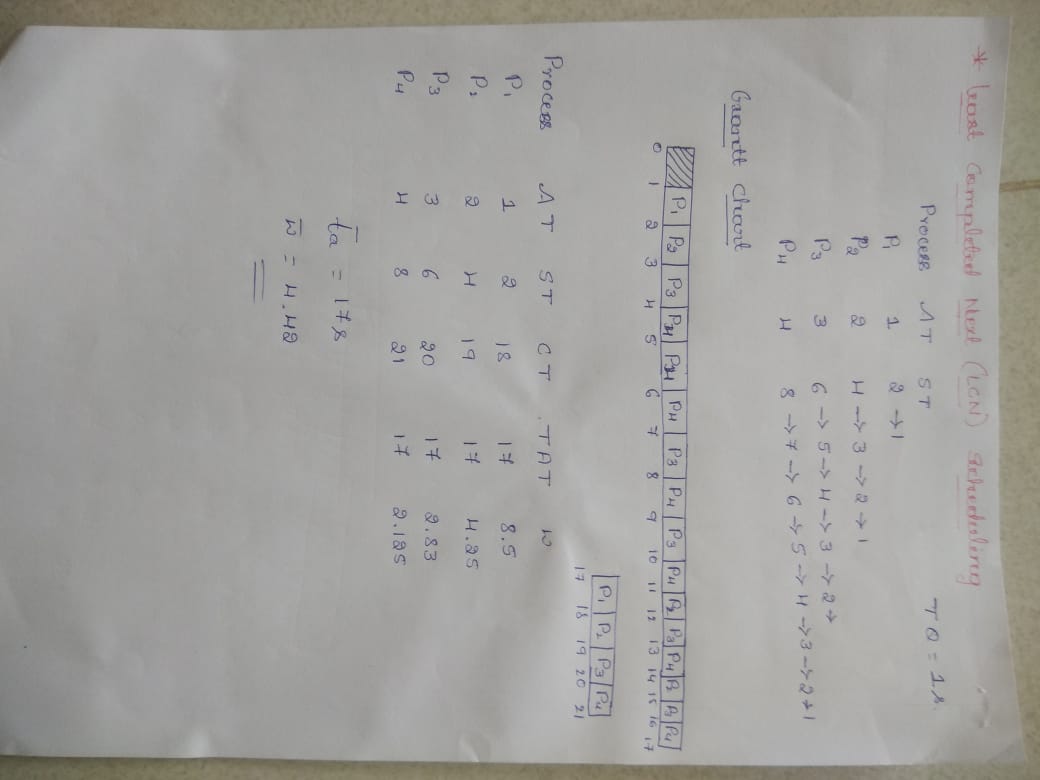 * Least Completed Next (LCN) Scheduling
Process AT ST TQ = 1s.
P1 1 2 → 1
P2 2 4 → 3 → 2 → 1
P3 3 6 → 5 → 4 → 3 → 2 →
P4 4 8 → 7 → 6 → 5 → 4 → 3 → 2 → 1
Grantt Chart
P1 P2 P3 P4 P4 P4 P3 P4 P3 P4 P2 P3 P4 P2 P3 P4
0 1 2 3 4 5 6 7 8 9 10 11 12 13 14 15 16 17
P1 P2 P3 P4
17 18 19 20 21
Process AT ST CT TAT W
P1 1 2 18 17 8.5
P2 2 4 19 17 4.25
P3 3 6 20 17 2.83
P4 4 8 21 17 2.125
t̄a = 17s
w̄ = 4.42